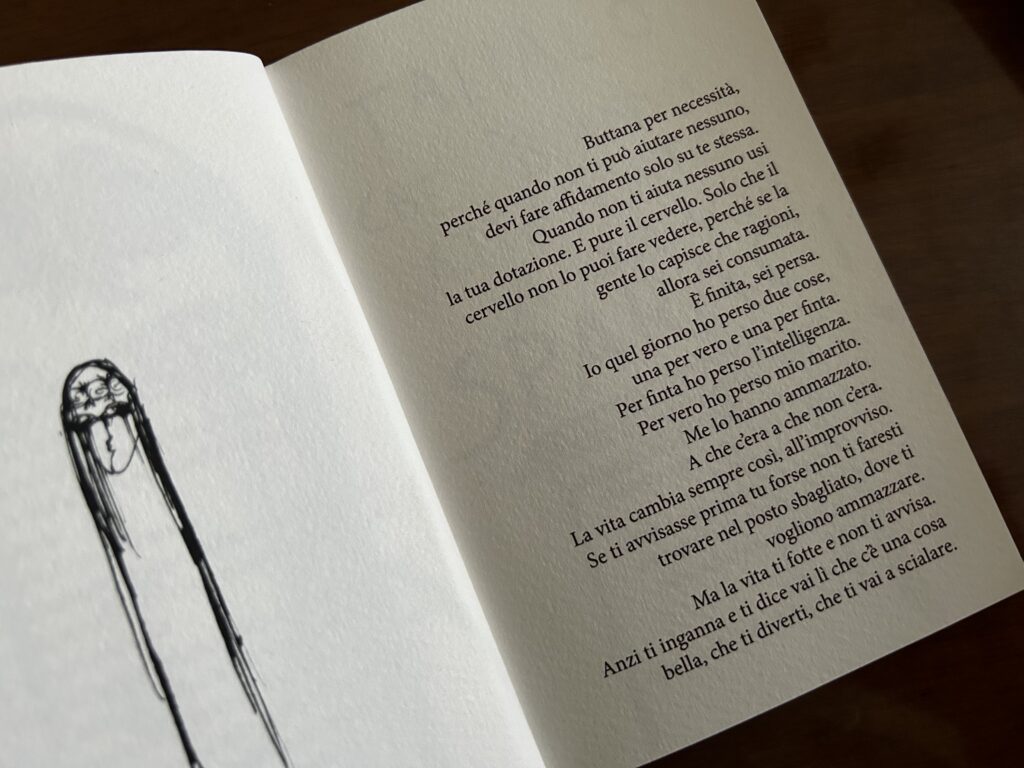 Buttana per necessità,
perché quando non ti può aiutare nessuno,
devi fare affidamento solo su te stessa.
Quando non ti aiuta nessuno usi
la tua dotazione. E pure il cervello. Solo che il
cervello non lo puoi fare vedere, perché se la
gente lo capisce che ragioni,
allora sei consumata.
È finita, sei persa.
Io quel giorno ho perso due cose,
una per vero e una per finta.
Per finta ho perso l'intelligenza.
Per vero ho perso mio marito.
Me lo hanno ammazzato.
A che c'era a che non c'era.
La vita cambia sempre così, all'improvviso.
Se ti avvisasse prima tu forse non ti faresti
trovare nel posto sbagliato, dove ti
vogliono ammazzare.
Ma la vita ti fotte e non ti avvisa.
Anzi ti inganna e ti dice vai lì che c'è una cosa
bella, che ti diverti, che ti vai a scialare.